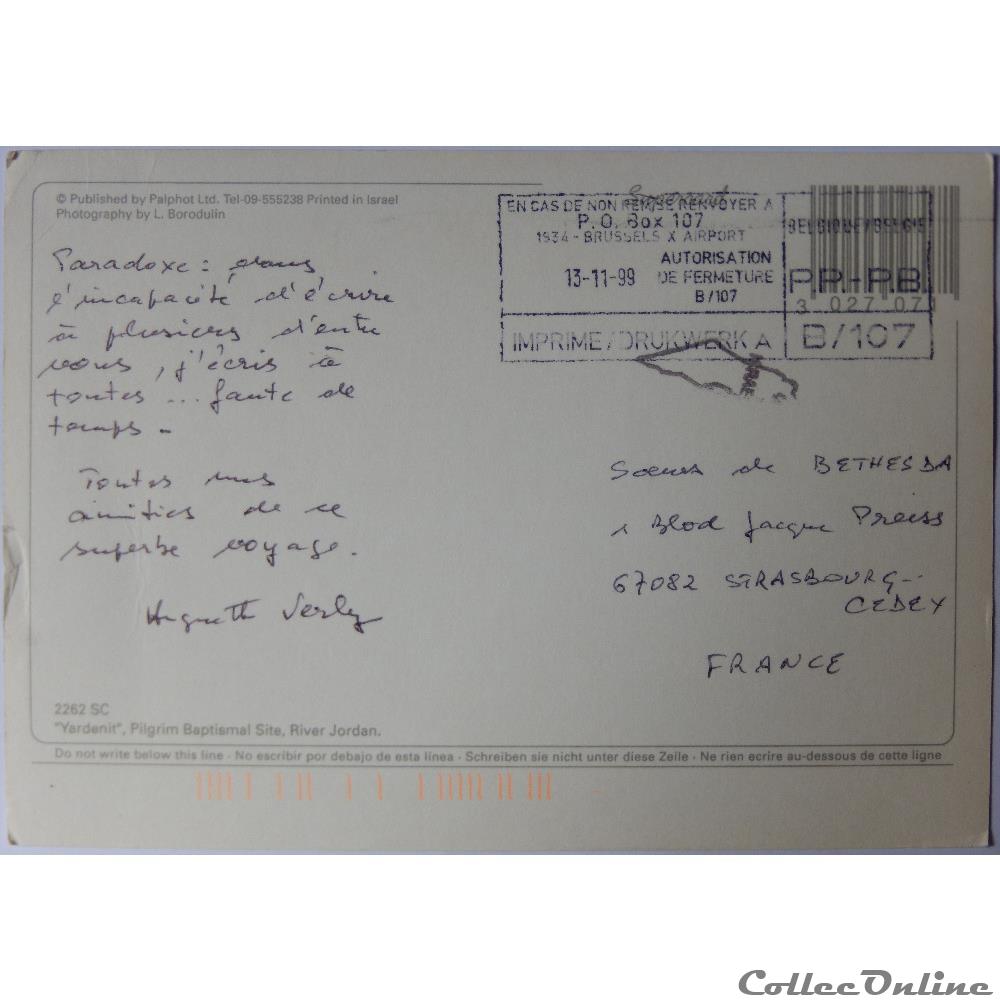 © Published by Palphot Ltd. Tel-09-555238 Printed in Israel
Photography by L. Borodulin
EN CAS DE NON REMISE RENVOYER A
P.O. Box 107
1934 - BRUSSELS X AIRPORT
AUTORISATION
13-11-99 DE FERMETURE
B/107
IMPRIME / DRUKWERK A
BELGIQUE / BELGIE
P.P. - P.B.
3 027 07
B/107
Paradoxe : dans
l'incapacité d'écrire
à plusieurs d'entre
vous, j'écris à
toutes ... faute de
temps -
Toutes mes
amitiés de ce
superbe voyage.
Huguette
Soeurs de BETHESDA
1 Blod Jacque Preiss
67082 STRASBOURG -
CEDEX
FRANCE
2262 SC
"Yardenit", Pilgrim Baptismal Site, River Jordan.
Do not write below this line · No escribir por debajo de esta línea · Schreiben sie nicht unter diese Zeile · Ne rien ecrire au-dessous de cette ligne
CollecOnline